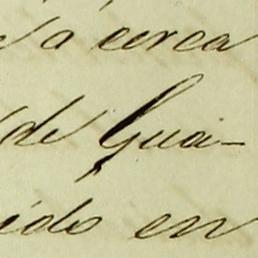 a cerca
de Guai-
ido en